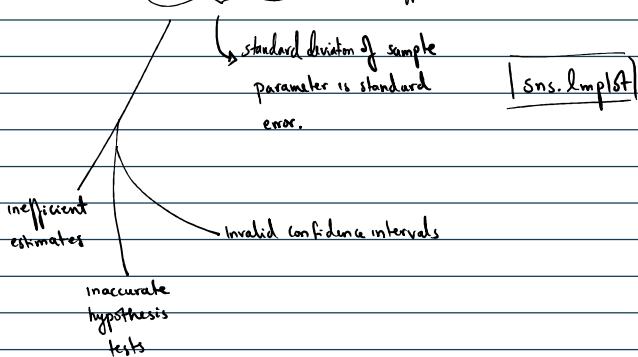 standard deviation of sample
parameter is standard
error.
sns.lmplot
inefficient
estimates
invalid confidence intervals
inaccurate
hypothesis
tests